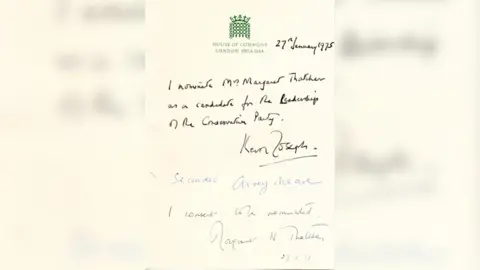 HOUSE OF COMMONS
LONDON SW1A 0AA
27th January 1975
I nominate Mrs Margaret Thatcher
as a candidate for the Leadership
of the Conservative Party.
Keith Joseph.
Seconded Airey Neave
I consent to be nominated.
Margaret H Thatcher